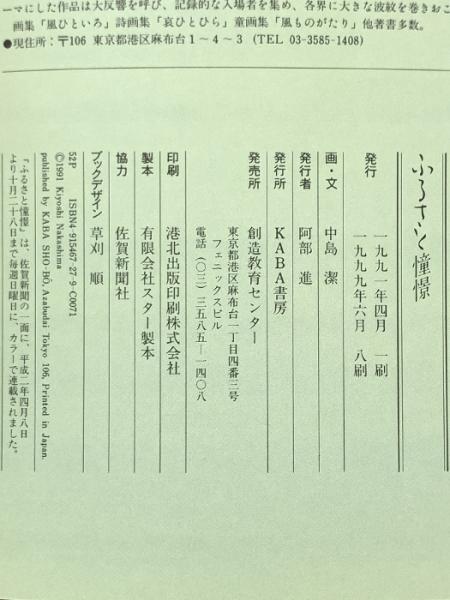 ーマにした作品は大反響を呼び、記録的な入場者を集め、各界に大きな波紋を巻きおこ
画集「風ひといろ」詩画集「哀ひとひら」童画集「風ものがたり」他著書多数。
●現住所；〒106 東京都港区麻布台1－4－3（TEL 03-3585-1408）
ふるさと憧憬
発行 一九九一年四月 一刷
一九九九年六月 八刷
画・文 中島 潔
発行者 阿部 進
発行所 KABA書房
発売所 創造教育センター
東京都港区麻布台一丁目四番三号
フェニックスビル
電話（〇三）三五八五―一四〇八
印刷 港北出版印刷株式会社
製本 有限会社スター製本
協力 佐賀新聞社
ブックデザイン 草刈 順
52P ISBN4-915467-27-9-C0071
©1991 Kiyoshi Nakashima
published by KABA SHO-BŌ, Azabudai Tokyo 106, Printed in Japan.
『ふるさと憧憬』は、佐賀新聞の一面に、平成二年四月八日
より十月二十八日まで毎週日曜日に、カラーで連載されました。